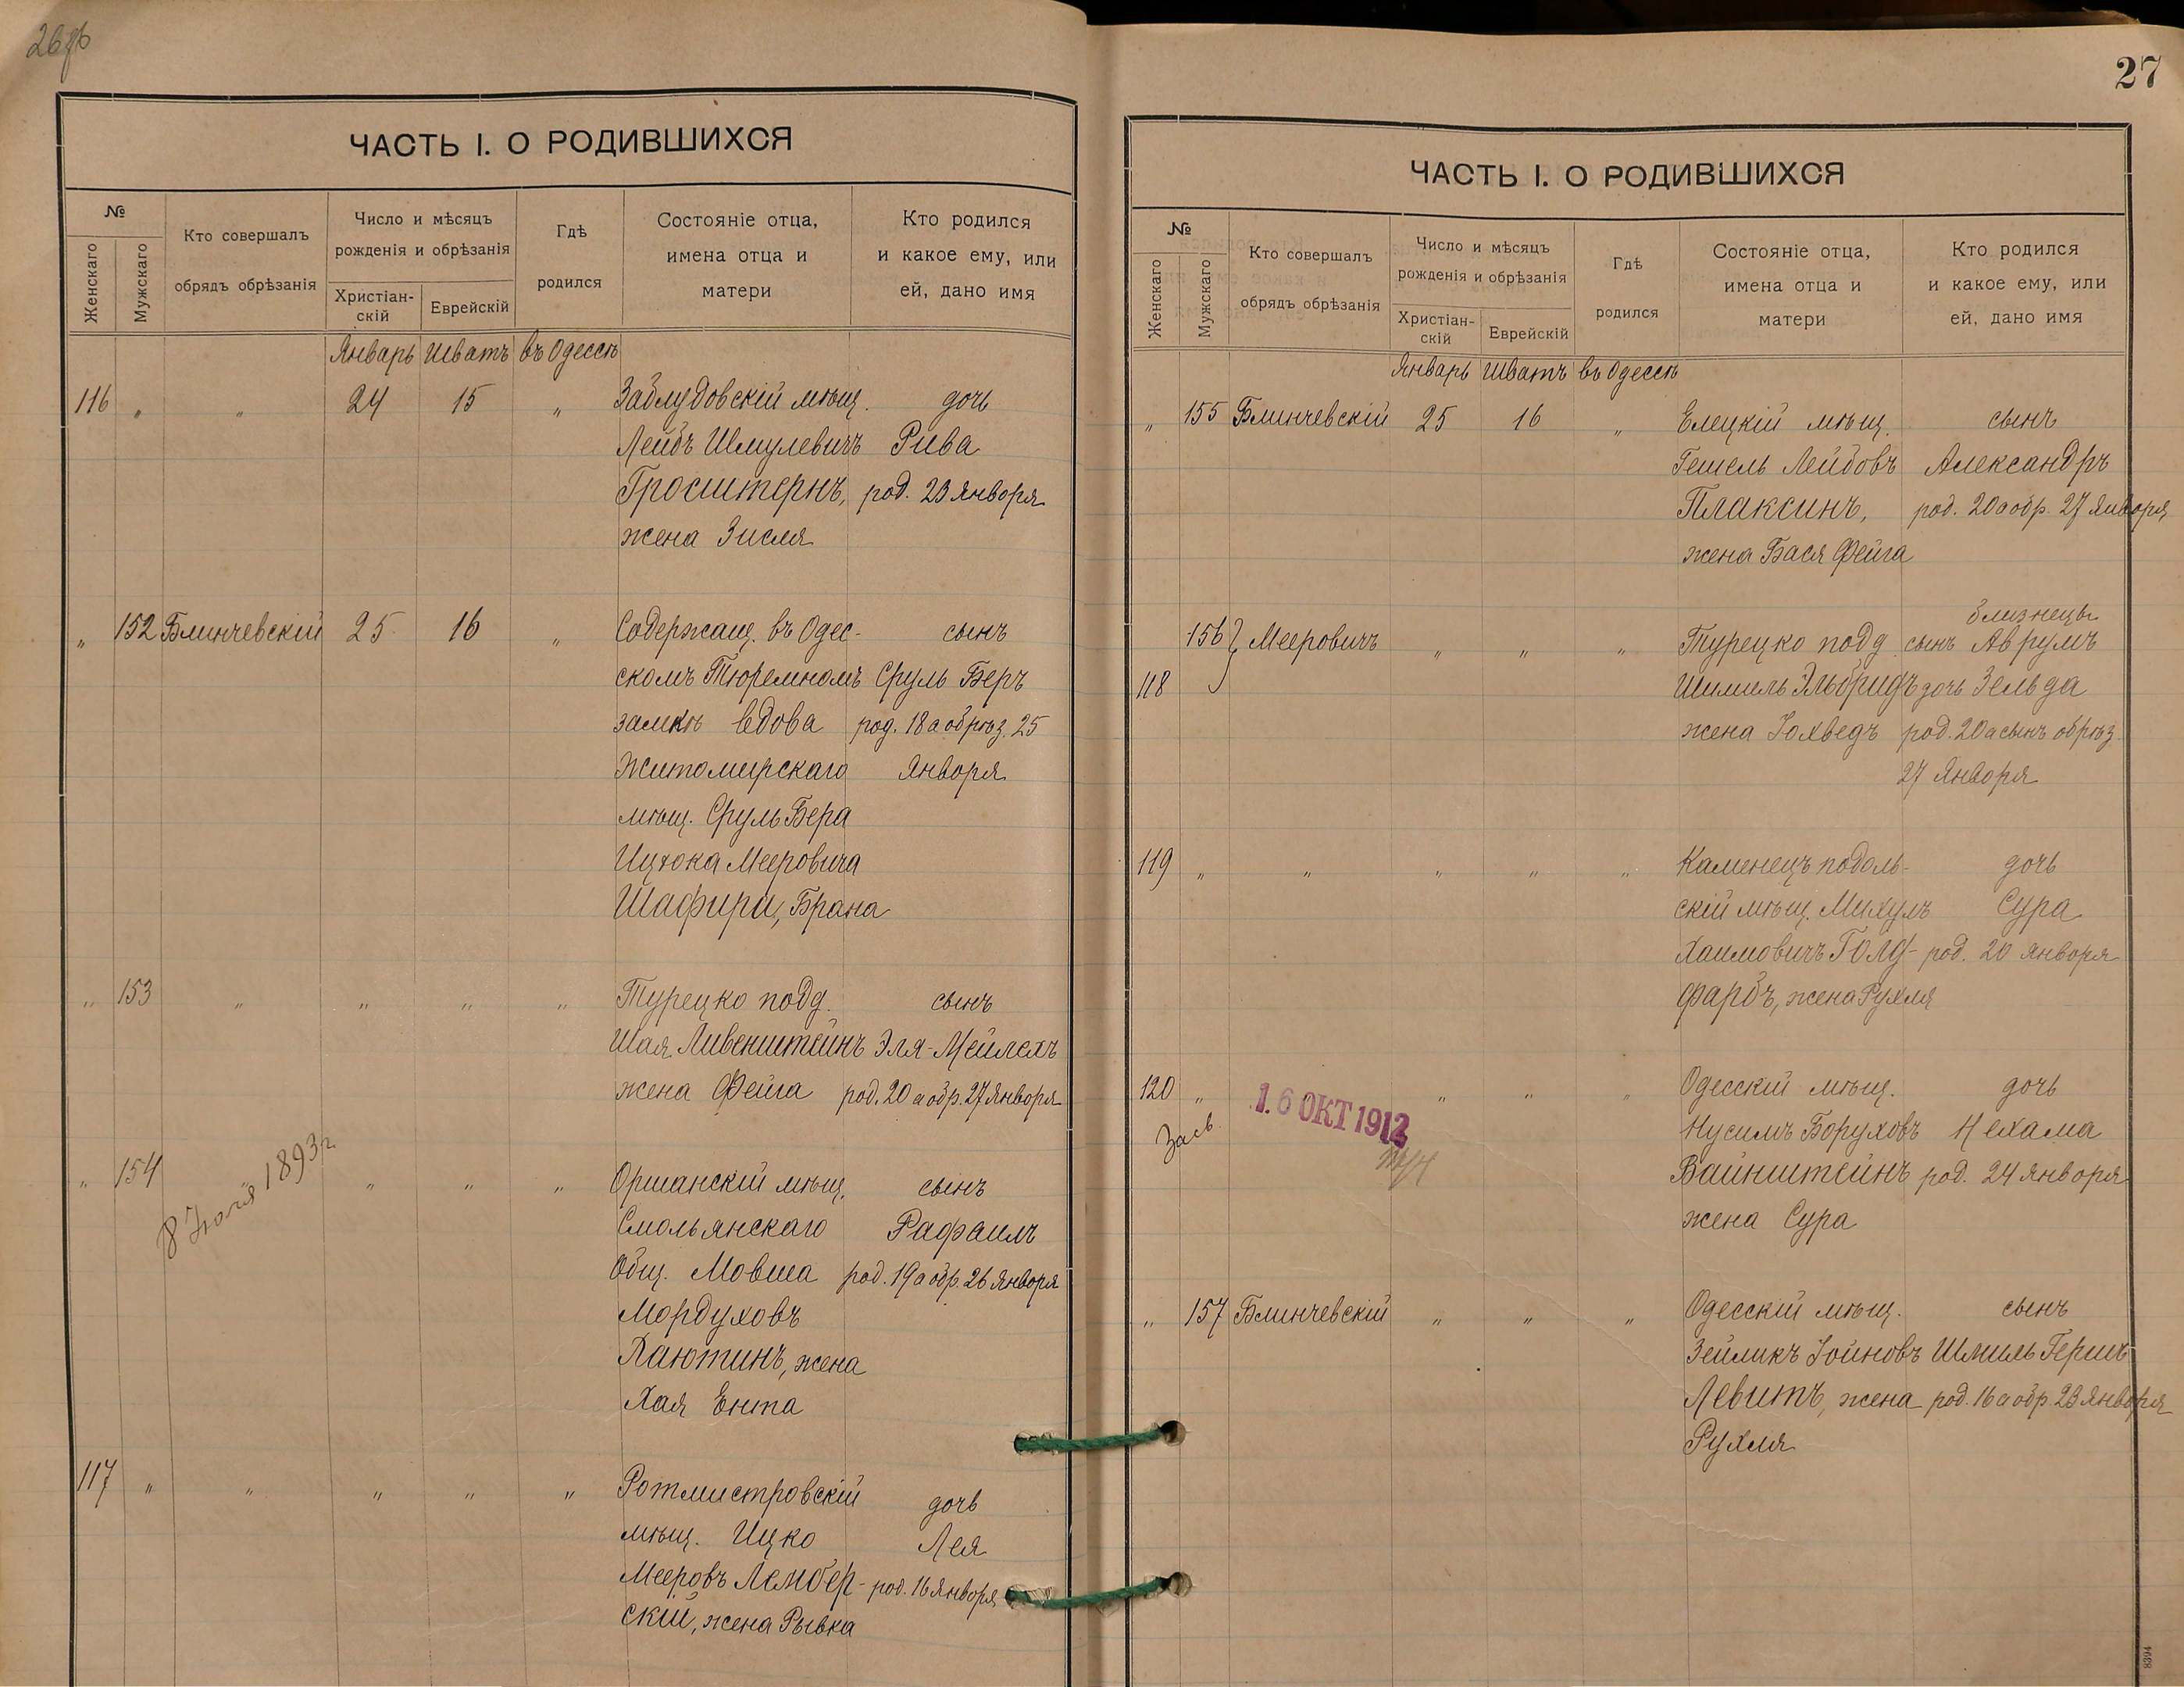 26об
ЧАСТЬ I. О РОДИВШИХСЯ
№
Женскаго
Мужскаго
Кто совершалъ
обрядъ обрѣзанія
Число и мѣсяцъ
рожденія и обрѣзанія
Христіан-
скій
Еврейскій
Гдѣ
родился
Состояніе отца,
имена отца и
матери
Кто родился
и какое ему, или
ей, дано имя
Январь Шватъ въ Одессѣ
116 " " 24 15 " Заблудовскій мѣщ. дочь
Лейбъ Шмулевичъ Рива
Гросштернъ, род. 23 Января
жена Зисля
" 152 Блинчевскій 25 16 " Содержащ. въ Одес- сынъ
скомъ Тюремномъ Сруль Беръ
замкѣ вдова род. 18 а обрѣз. 25
Житомирскаго Января
мѣщ. Сруль Бера
Ицхока Мееровича
Шафира, Брана
" 153 " " " " Турецко подд. сынъ
Шая Ливенштейнъ Эля-Мейлехъ
жена Фейга род. 20 а обр. 27 Января
" 154 " " " Оршанскій мѣщ. сынъ
8 Іюля 1893 г.
Смольянскаго Рафаилъ
Общ. Мовша род. 19 а обр. 26 Января
Мордуховъ
Хаютинъ, жена
Хая Ента
117 " " " " " Ротмистровскій дочь
мѣщ. Ицко Лея
Мееровъ Лембер- род. 16 Января
скій, жена Рывка
27
ЧАСТЬ I. О РОДИВШИХСЯ
№
Женскаго
Мужскаго
Кто совершалъ
обрядъ обрѣзанія
Число и мѣсяцъ
рожденія и обрѣзанія
Христіан-
скій
Еврейскій
Гдѣ
родился
Состояніе отца,
имена отца и
матери
Кто родился
и какое ему, или
ей, дано имя
Январь Шватъ въ Одессѣ
" 155 Блинчевскій 25 16 " Елецкій мѣщ. сынъ
Гешель Лейбовъ Александръ
Плаксинъ, род. 20 а обр. 27 Января
жена Бася Фейга
близнецы
156 } Мееровичъ " " " Турецко подд сынъ Аврумъ
118 Шимель Эльбридъ дочь Зельда
жена Іохведъ род. 20 а сынъ обрѣз.
27 Января
119 " " " " " Каменецъ подоль- дочь
скій мѣщ. Михулъ Сура
Хаимовичъ Голд- род. 20 Января
фарбъ, жена Рухля
120 " " " " Одесскій мѣщ. дочь
1.6 ОКТ 1912
Зась.
Нусимъ Боруховъ Нехама
Вайнштейнъ род. 24 Января
жена Сура
" 157 Блинчевскій " " " Одесскій мѣщ. сынъ
Зейликъ Іойновъ Шмиль Гершъ
Левитъ, жена род. 16 а обр. 23 Января
Рухля
8394